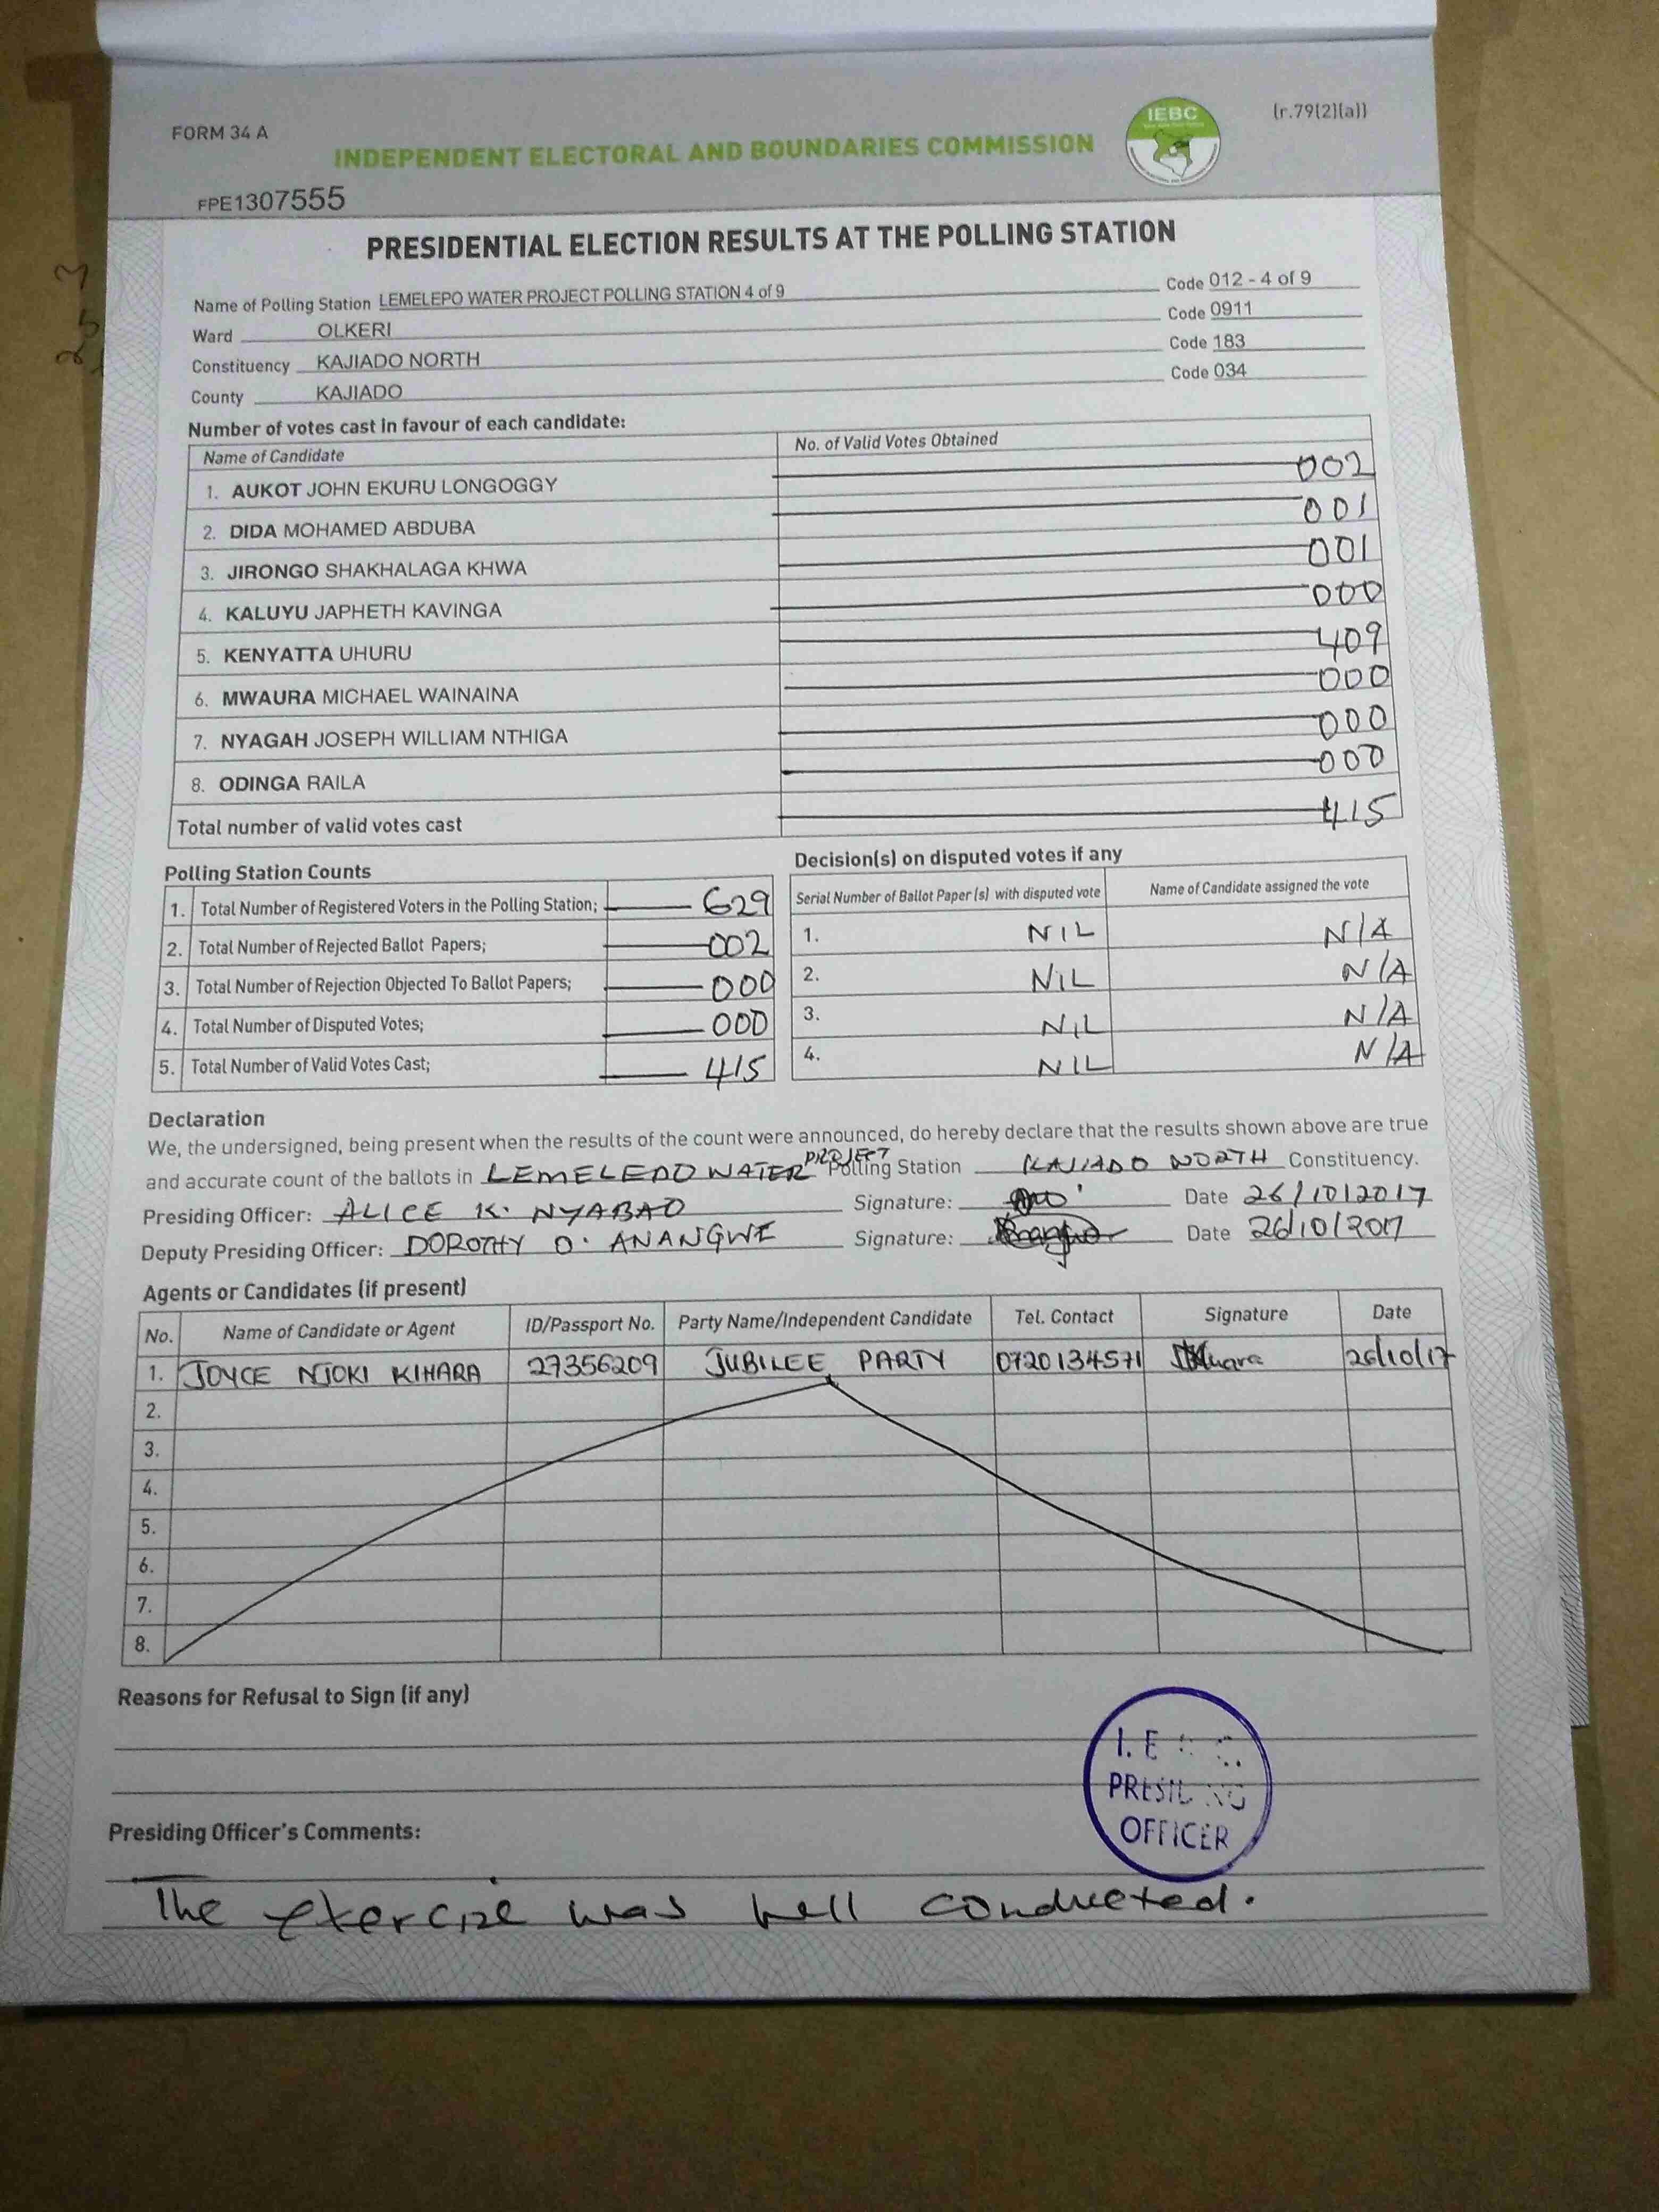 FORM 34 A
(r.79(2)(a))
IEBC
INDEPENDENT ELECTORAL AND BOUNDARIES COMMISSION
FPE1307555
PRESIDENTIAL ELECTION RESULTS AT THE POLLING STATION
Name of Polling Station LEMELEPO WATER PROJECT POLLING STATION 4 of 9 Code 012 - 4 of 9
Ward OLKERI Code 0911
Constituency KAJIADO NORTH Code 183
County KAJIADO Code 034
Number of votes cast in favour of each candidate:
Name of Candidate No. of Valid Votes Obtained
1. AUKOT JOHN EKURU LONGOGGY 002
2. DIDA MOHAMED ABDUBA 001
3. JIRONGO SHAKHALAGA KHWA 001
4. KALUYU JAPHETH KAVINGA 000
5. KENYATTA UHURU 409
6. MWAURA MICHAEL WAINAINA 000
7. NYAGAH JOSEPH WILLIAM NTHIGA 000
8. ODINGA RAILA 000
Total number of valid votes cast 415
Polling Station Counts
1. Total Number of Registered Voters in the Polling Station; 629
2. Total Number of Rejected Ballot Papers; 002
3. Total Number of Rejection Objected To Ballot Papers; 000
4. Total Number of Disputed Votes; 000
5. Total Number of Valid Votes Cast; 415
Decision(s) on disputed votes if any
Serial Number of Ballot Paper (s) with disputed vote Name of Candidate assigned the vote
1. NIL N/A
2. NIL N/A
3. NIL N/A
4. NIL N/A
Declaration
We, the undersigned, being present when the results of the count were announced, do hereby declare that the results shown above are true
and accurate count of the ballots in LEMELEPO WATER PROJECT Polling Station KAJIADO NORTH Constituency.
Presiding Officer: ALICE K. NYABAO Signature: Date 26/10/2017
Deputy Presiding Officer: DOROTHY O. ANANGWE Signature: Date 26/10/2017
Agents or Candidates (if present)
No. Name of Candidate or Agent ID/Passport No. Party Name/Independent Candidate Tel. Contact Signature Date
1. JOYCE NJOKI KIHARA 27356209 JUBILEE PARTY 0720134571 26/10/17
2.
3.
4.
5.
6.
7.
8.
Reasons for Refusal to Sign (if any)
I.E
PRESIDING
OFFICER
Presiding Officer's Comments:
The exercise was well conducted.